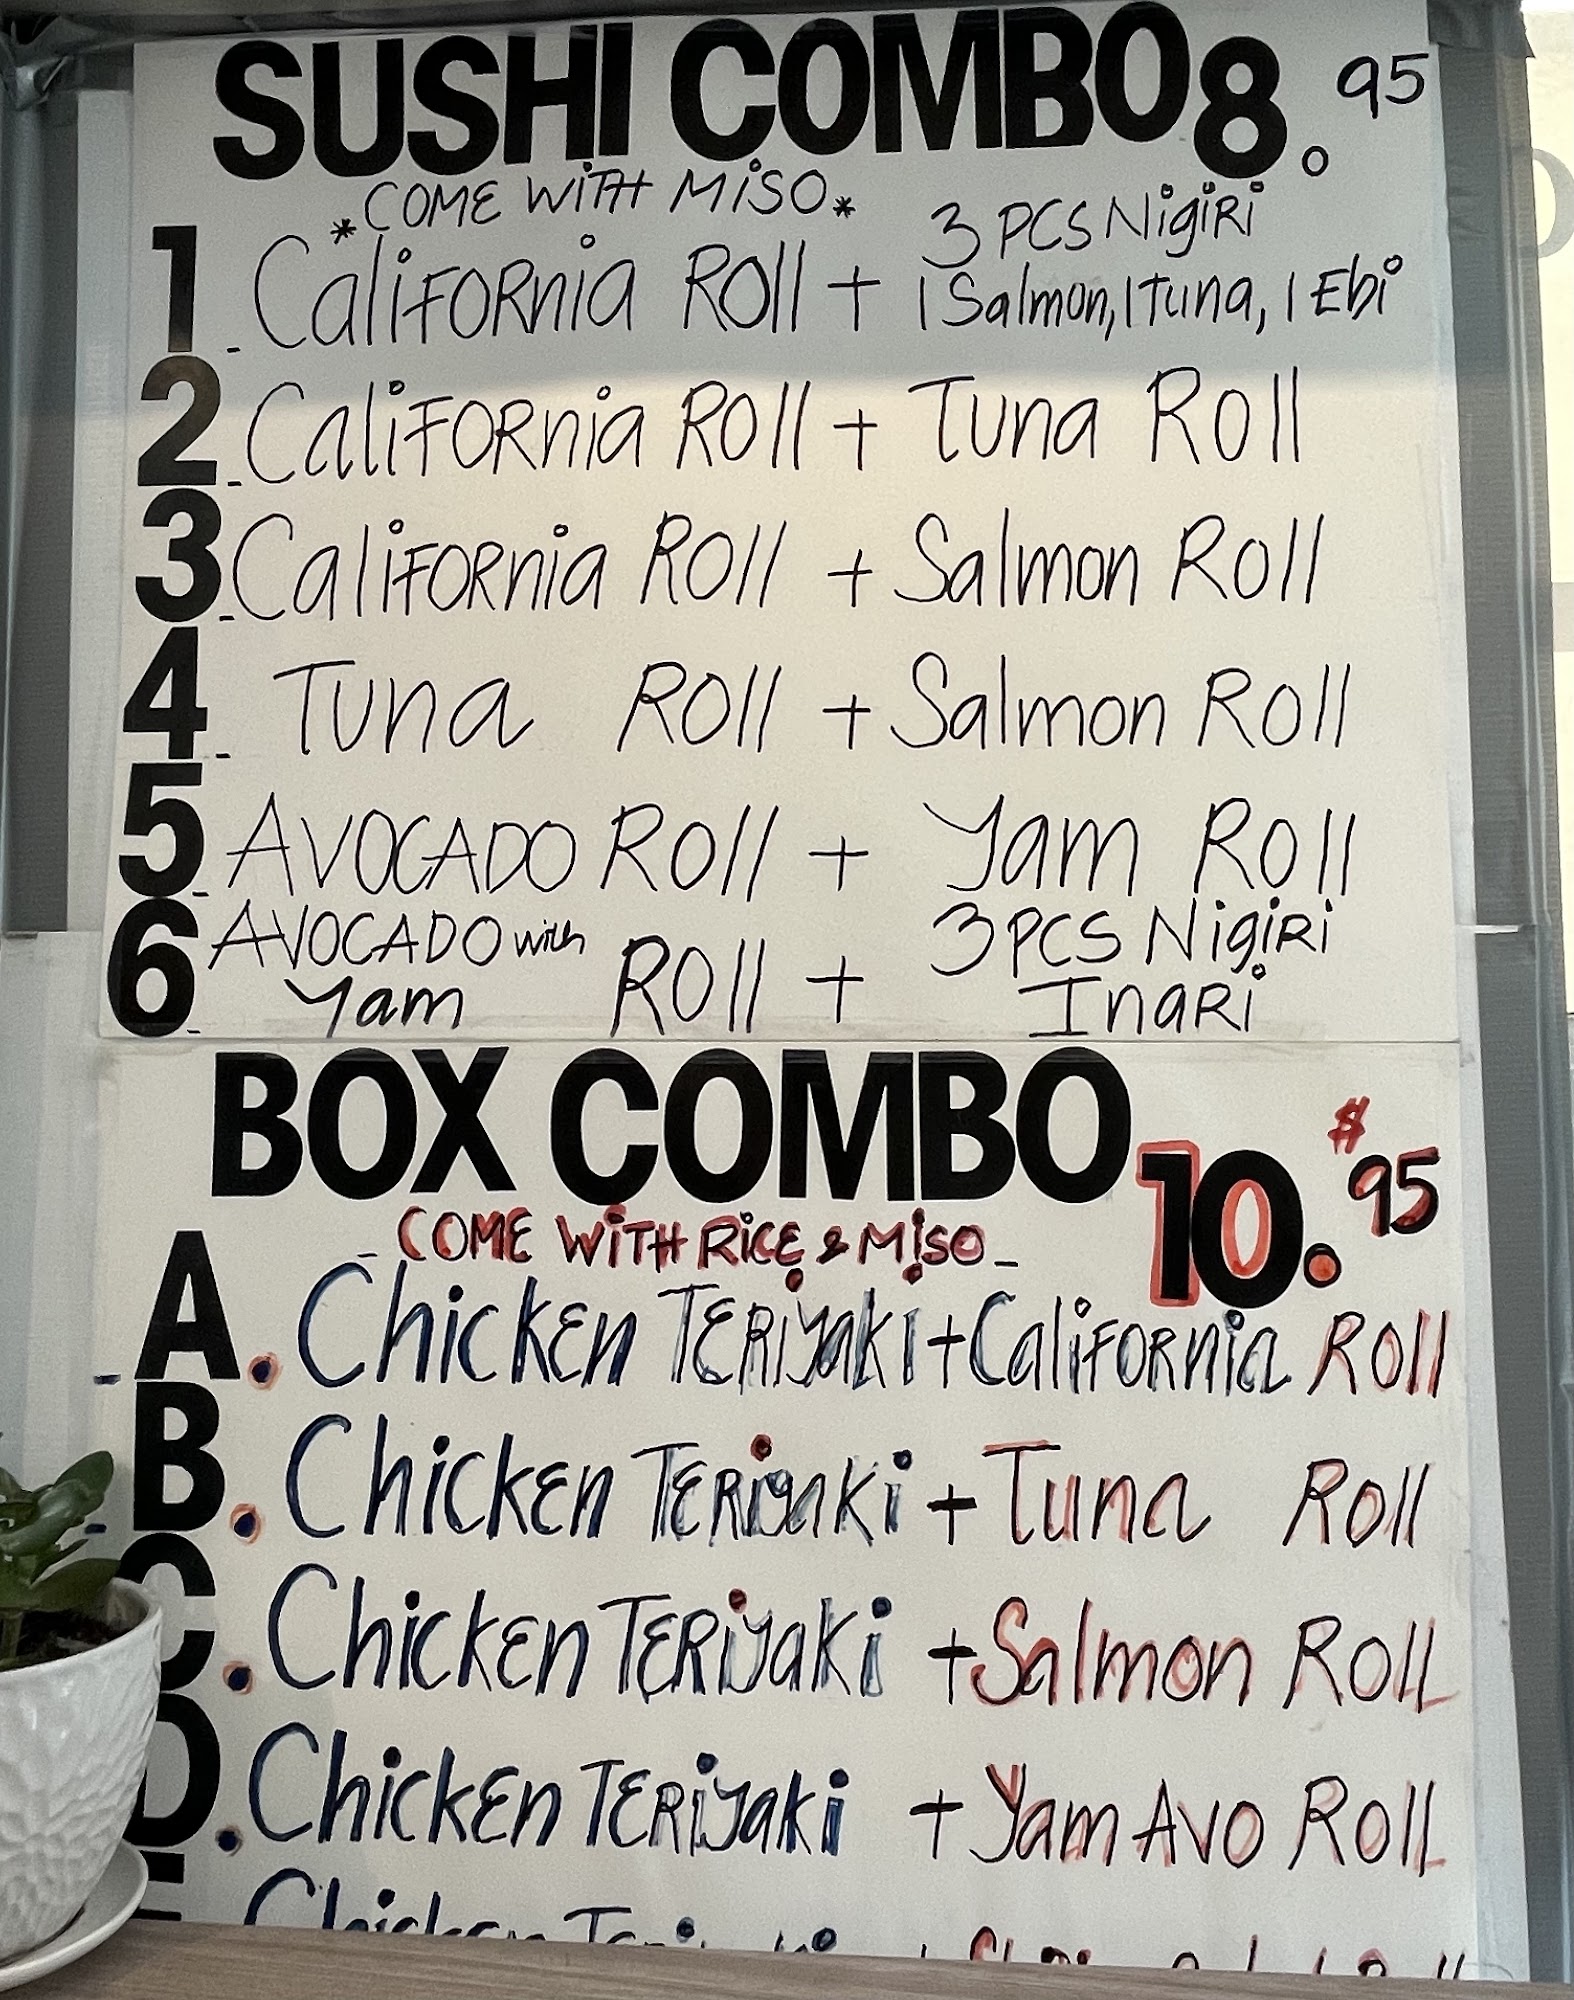 SUSHI COMBO 8.95
*COME WITH MISO*
1- California Roll + 3 PCS Nigiri
1 Salmon, 1 Tuna, 1 Ebi
2- California Roll + Tuna Roll
3- California Roll + Salmon Roll
4- Tuna Roll + Salmon Roll
5- AVOCADO Roll + Yam Roll
6- AVOCADO with Yam Roll + 3 PCS Nigiri Inari
BOX COMBO $10.95
- COME WITH RICE & MISO -
- A. Chicken Teriyaki + California Roll
- B. Chicken Teriyaki + Tuna Roll
C. Chicken Teriyaki + Salmon Roll
D. Chicken Teriyaki + Yam Avo Roll
Chicken Teriyaki +